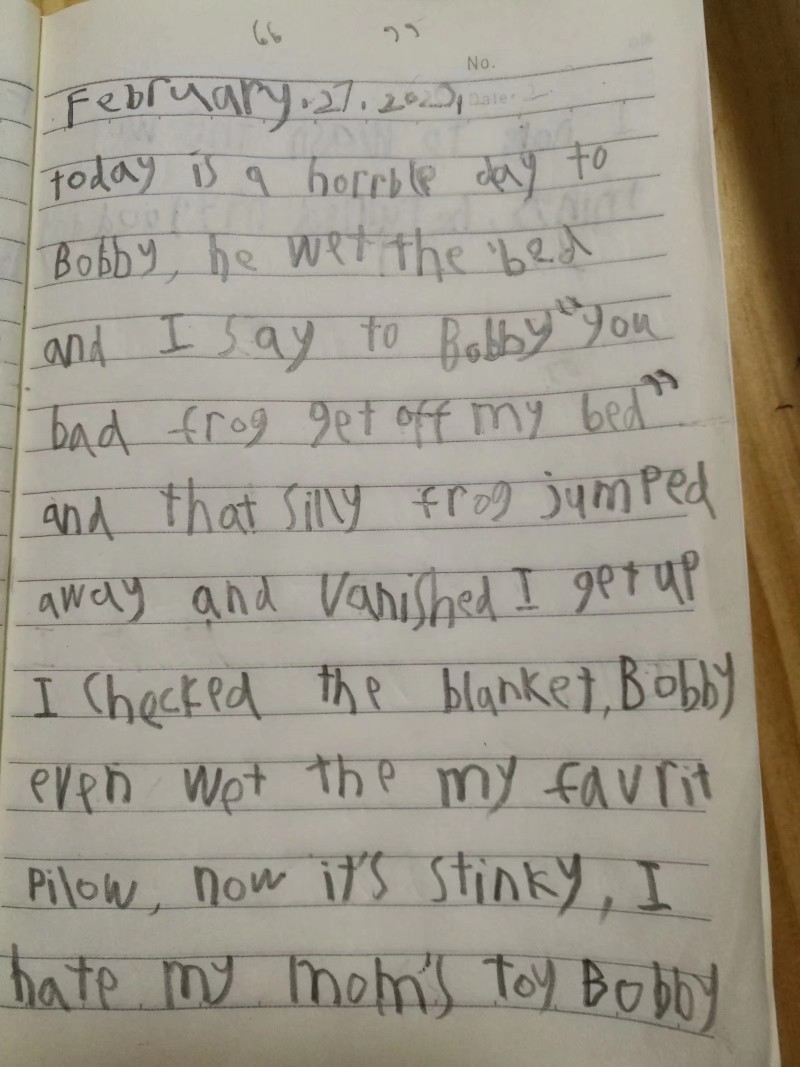 “ ”
No.
February.27.202
Date:
today is a horrble day to
Bobby, he wet the bed
and I say to Bobby “you
bad frog get off my bed”
and that silly frog jumped
away and vanished I get up
I checked the blanket, Bobby
even wet the my favrit
pilow, now it's stinky, I
hate my mom's toy Bobby